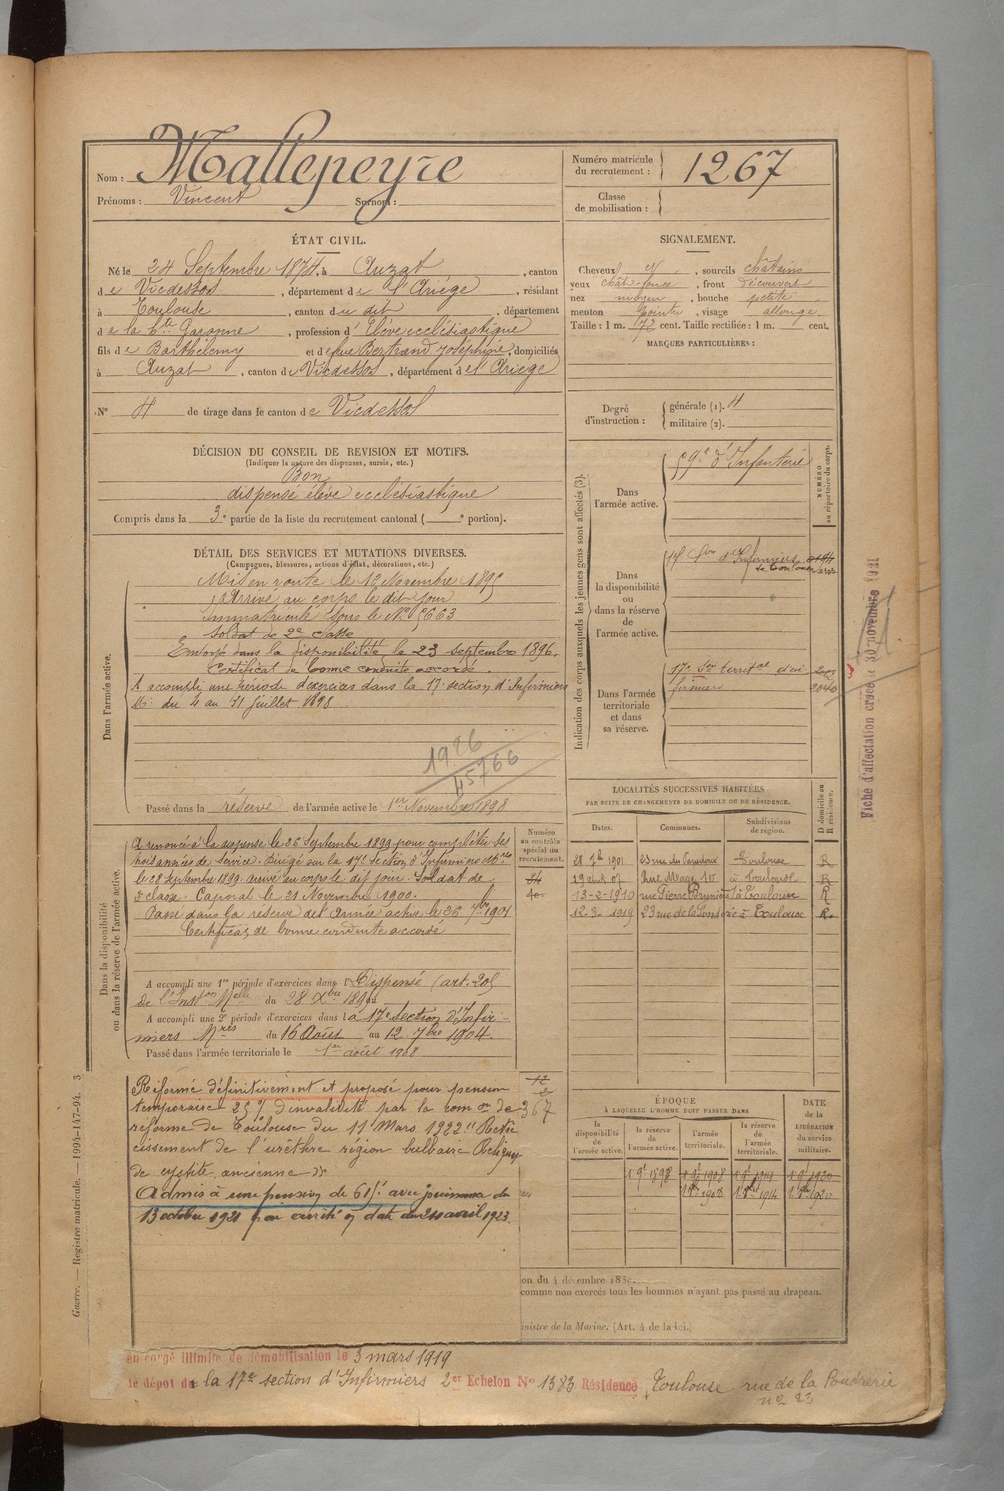 Nom : Mallepeyre
Prénoms : Vincent Surnom :
Numéro matricule du recrutement : 1267
Classe de mobilisation :
ÉTAT CIVIL.
Né le 24 Septembre 1874, à Auzat, canton
de Vicdessos, département de l'Ariège, résidant
à Toulouse, canton du dit, département
de la Hte Garonne, profession d'Élève ecclésiastique
fils de Barthélemy et de feue Bertrand Joséphine, domiciliés
à Auzat, canton de Vicdessos, département de l'Ariège
N° 4 de tirage dans le canton de Vicdessos
SIGNALEMENT.
Cheveux et, sourcils châtains
yeux chât. foncé, front découvert
nez moyen, bouche petite
menton pointu, visage allongé
Taille : 1 m. 72 cent. Taille rectifiée : 1 m. cent.
MARQUES PARTICULIÈRES :
Degré d'instruction : générale (1). 4
militaire (2).
DÉCISION DU CONSEIL DE REVISION ET MOTIFS.
(Indiquer la nature des dispenses, sursis, etc.)
Bon
dispensé élève ecclésiastique
Compris dans la 3e partie de la liste du recrutement cantonal ( e portion).
Indication des corps auxquels les jeunes gens sont affectés (3).
NUMÉRO au répertoire du corps.
Dans l'armée active.
59e d'Infanterie
Dans la disponibilité ou dans la réserve de l'armée active.
17e Son d'Infirmiers
de Toulouse
Dans l'armée territoriale et dans sa réserve.
17e Son territle d'infirmiers
DÉTAIL DES SERVICES ET MUTATIONS DIVERSES.
(Campagnes, blessures, actions d'éclat, décorations, etc.)
Dans l'armée active.
Mis en route le 16 Novembre 1895
Arrivé au corps le dit jour
Immatriculé sous le N° 5663
Soldat de 2e classe
Envoyé dans la disponibilité le 23 septembre 1896.
Certificat de bonne conduite accordé.
A accompli une période d'exercices dans la 17e section d'Infirmiers
Mres du 4 au 31 juillet 1898
1926
45766
Passé dans la réserve de l'armée active le 1er Novembre 1898
Dans la disponibilité ou dans la réserve de l'armée active.
Numéro au contrôle spécial du recrutement.
A renoncé à la dispense le 26 Septembre 1899 pour compléter ses
trois années de service. Dirigé sur la 17e Section d'Infirmiers
le 28 Septembre 1899. arrivé au corps le dit jour. Soldat de
2e classe. Caporal le 21 Novembre 1900.
Passé dans la réserve de l'Armée active le 26 7bre 1901
Certificat de bonne conduite accordé
A accompli une 1re période d'exercices dans l Dispensé (art. 205
de l'Inston Melle du 28 Xbre 1895
A accompli une 2e période d'exercices dans la 17e Section d'Infir-
miers Mres du 16 Août au 12 7bre 1904.
Passé dans l'armée territoriale le 1er août 1908
LOCALITÉS SUCCESSIVES HABITÉES
PAR SUITE DE CHANGEMENTS DE DOMICILE OU DE RÉSIDENCE.
Dates. Communes. Subdivisions de région. D domicile ou R résidence.
28 7b 1901 23 rue du Toulouse R
rue Mage 10 à Toulouse R
13-2-1910 rue Pierre Brunière à Toulouse R
12-3-1919 23 rue de la Poudrerie à Toulouse R
Réformé définitivement et proposé pour pension
temporaire 25% d'invalidité par la comon de
réforme de Toulouse du 11 Mars 1922 "Rétré
cissement de l'urèthre région bulbaire Reliquat
de cystite ancienne"
Admis à une pension de 61f. avec jouissance du
13 octobre 1921 par arrêté en date du 24 avril 1923.
367
ÉPOQUE
À LAQUELLE L'HOMME DOIT PASSER DANS
la disponibilité de l'armée active. la réserve de l'armée active. l'armée territoriale. la réserve de l'armée territoriale. DATE de la LIBÉRATION du service militaire.
1 9b 1898 1 9b 1908 1 9b 1914 1 9b 1920
1er 8 1908 1er 8 1914 1er 8 1920
on du 4 décembre 188
comme non exercés tous les hommes n'ayant pas passé au drapeau.
inistre de la Marine. (Art. 4 de la loi.)
en congé illimité de démobilisation le 3 mars 1919
le dépot de la 17e section d'Infirmiers 2er Echelon N° 1383 Résidence Toulouse rue de la Poudrerie
n° 23
Fiche d'affectation créée le 30 novembre 1921
Guerre. — Registre matricule. — 1994-147-94. 3